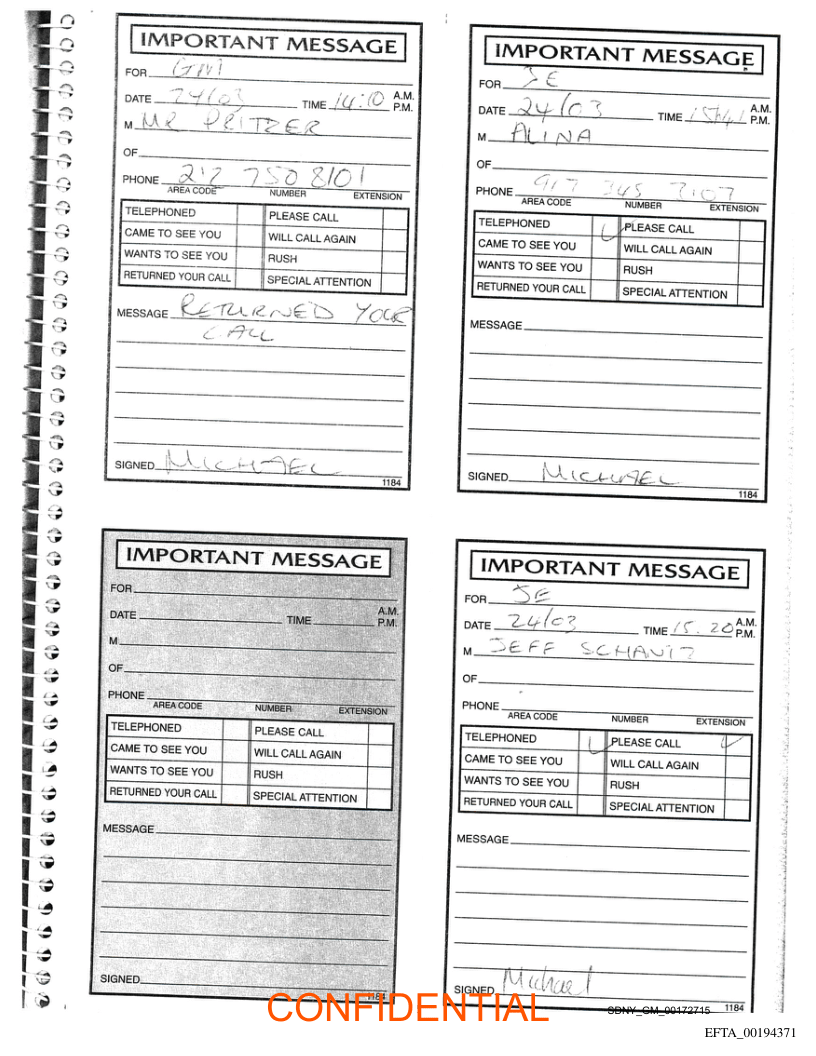 IMPORTANT MESSAGE
FOR GM
DATE 24/03 TIME 14:10 A.M. P.M.
M MR PRITZER
OF
PHONE 212 750 8101
AREA CODE NUMBER EXTENSION
TELEPHONED PLEASE CALL
CAME TO SEE YOU WILL CALL AGAIN
WANTS TO SEE YOU RUSH
RETURNED YOUR CALL SPECIAL ATTENTION
MESSAGE RETURNED YOUR
CALL
SIGNED MICHAEL
1184
IMPORTANT MESSAGE
FOR JE
DATE 24/03 TIME A.M. P.M.
M ALINA
OF
PHONE 917 345 7107
AREA CODE NUMBER EXTENSION
TELEPHONED PLEASE CALL
CAME TO SEE YOU WILL CALL AGAIN
WANTS TO SEE YOU RUSH
RETURNED YOUR CALL SPECIAL ATTENTION
MESSAGE
SIGNED MICHAEL
1184
IMPORTANT MESSAGE
FOR
DATE TIME A.M. P.M.
M
OF
PHONE
AREA CODE NUMBER EXTENSION
TELEPHONED PLEASE CALL
CAME TO SEE YOU WILL CALL AGAIN
WANTS TO SEE YOU RUSH
RETURNED YOUR CALL SPECIAL ATTENTION
MESSAGE
SIGNED
1184
IMPORTANT MESSAGE
FOR JE
DATE 24/03 TIME 15.20 A.M. P.M.
M JEFF
OF
PHONE
AREA CODE NUMBER EXTENSION
TELEPHONED PLEASE CALL
CAME TO SEE YOU WILL CALL AGAIN
WANTS TO SEE YOU RUSH
RETURNED YOUR CALL SPECIAL ATTENTION
MESSAGE
SIGNED Michael
1184
CONFIDENTIAL
SDNY_GM_00172715
EFTA_00194371